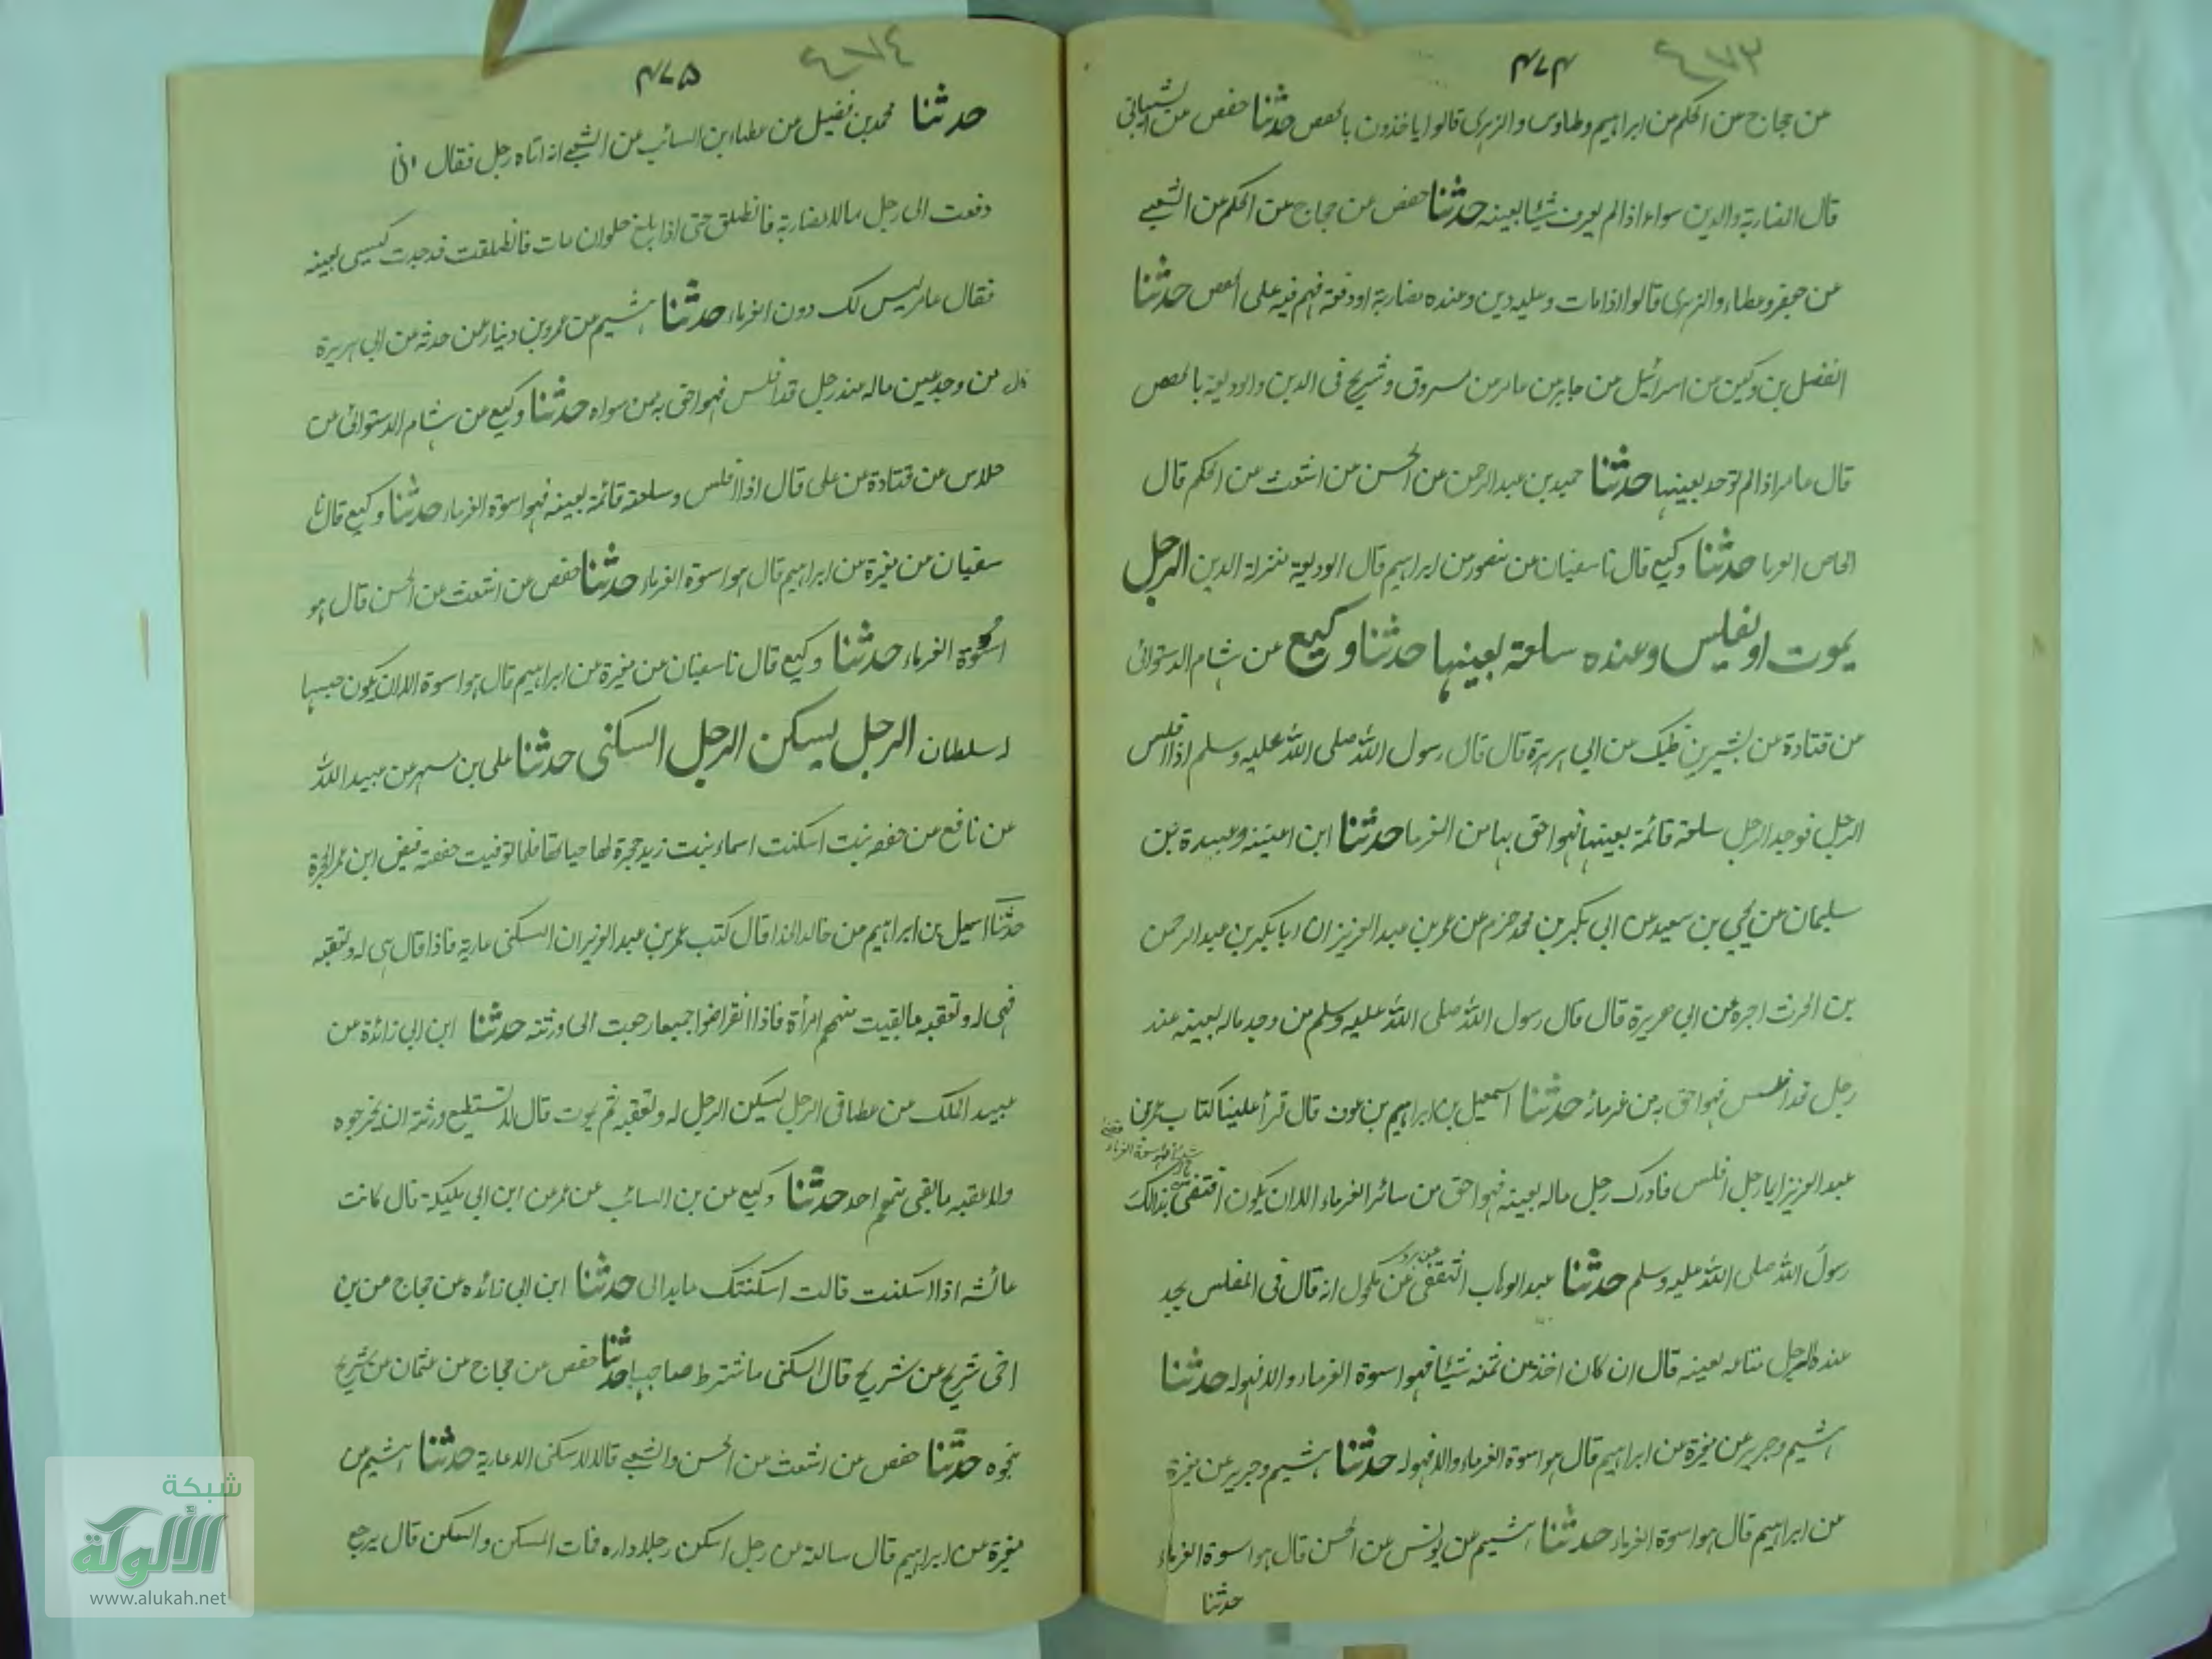 ٤٧٣
۴۷۴
من حجاج من الحكم من ابراهيم وطاوس والزهرى قالوا ياخذون بالحصص حدثنا حفص من الشيبانى
قال المضاربة والدين سواء اذا لم يعرف شيئا بعينه حدثنا حفص عن حجاج عن الحكم عن الشعبى
عن جعفر وعطاء والزهرى قالوا اذا مات وعليه دين وعنده مضاربة او وديعة فهم فيه على الحصص حدثنا
الفضل بن دكين من اسرائيل من جابر من عامر من مسروق وشريح فى الدين والوديعة بالحصص
قال عامر اذا لم توجد بعينها حدثنا حميد بن عبد الرحمن عن الحسن من اشعث عن الحكم قال
حدثنا وكيع قال نا سفيان من منصور من ابراهيم قال الوديعة بمنزلة الدين الرجل
يموت او يفلس وعنده سلعة بعينها حدثنا وكيع عن هشام الدستوائى
من قتادة من بشير بن نهيك من ابى هريرة قال قال رسول الله صلى الله عليه وسلم اذا افلس
الرجل فوجد الرجل سلعة قائمة بعينها فهو احق بها من الغرما حدثنا ابن اعيينه وعبيدة بن
سليمان من يحيى بن سعيد من ابى بكر بن محمد حزم من عمر بن عبد العزيز ان ابا بكر بن عبد الرحمن
بن الحرث اجره من ابى هريرة قال قال رسول الله صلى الله عليه وسلم من وجد ماله بعينه عند
رجل قد افلس فهو احق به من غرمائه حدثنا اسمعيل بن ابراهيم بن عون قال قرأ علينا كتاب عمر بن
عبد العزيز ايما رجل افلس فادرك رجل ماله بعينه فهو احق من سائر الغرماء الا ان يكون اقتضى بذلك
رسول الله صلى الله عليه وسلم حدثنا عبد الوهاب الثقفى عن برد عن مكحول انه قال فى المفلس يجد
عنده الرجل متاعه بعينه قال ان كان اخذ من ثمنه شيئا فهو اسوة الغرماء والا فهو له حدثنا
هشيم وجرير عن مغيرة من ابراهيم قال هو اسوة الغرماء والا فهو له حدثنا هشيم وجرير عن مغيرة
من ابراهيم قال هو اسوة الغرماء حدثنا هشيم من يونس عن الحسن قال هو اسوة الغرماء
حدثنا
٤٧٤
۴۷۵
حدثنا محمد بن فضيل من عطاء بن السائب من الشعبى انه اتاه رجل فقال انى
دفعت الى رجل مالا مضاربة فانطلق حتى اذا بلغ حلوان مات فانطلقت فوجدت كيسى بعينه
فقال عامر ليس لك دون الغرماء حدثنا هشيم من عمرو بن دينار من حدثه من ابى هريرة
قال من وجد عين ماله عند رجل قد افلس فهو احق به ممن سواه حدثنا وكيع من هشام الدستوائى من
خلاس عن قتادة عن على قال اذا افلس وسلعة قائمة بعينه فهو اسوة الغرماء حدثنا وكيع قال نا
سفيان من مغيرة من ابراهيم قال هو اسوة الغرماء حدثنا حفص من اشعث من الحسن قال هو
اسوة الغرماء حدثنا وكيع قال نا سفيان من مغيرة من ابراهيم قال هو اسوة الا ان يكون حبسها
لسلطان الرجل يسكن الرجل السكنى حدثنا على بن مسهر من عبيد الله
عن نافع من حفصه بنت اسكنت اسماء بنت زيد حجرة لها حياتها فلما توفيت حفصة قبض ابن عمر الحجرة
حدثنا اسمعيل بن ابراهيم من خالد الحذا قال كتب عمر بن عبد العزيز ان السكنى عارية فاذا قال هى له ولعقبه
فهى له ولعقبه ما بقيت منهم امرأة فاذا انقرضوا جميعا رجعت الى ورثته حدثنا ابن ابى زائدة من
عبيد الملك من عطا فى الرجل يسكن الرجل له ولعقبه ثم يموت قال لا تستطيع ورثته ان يخرجوه
ولا عقبه ما بقى منهم احد حدثنا وكيع من بن السائب عن عمر من ابن ابى مليكة قال كانت
عائشه اذا اسكنت قالت اسكنتك ما بدا لى حدثنا ابن ابى زائده من حجاج من بن
اخى شريح من شريح قال السكنى ما شترط صاحبها حدثنا حفص من حجاج من عثمان من شريح
بنحوه حدثنا حفص من اشعث من الحسن والشعبى قالا لا سكنى الا عارية حدثنا هشيم من
مغيرة من ابراهيم قال سالته من رجل اسكن رجلا داره فمات المسكن والمسكن قال يرجع
شبكة
الألوكة
www.alukah.net